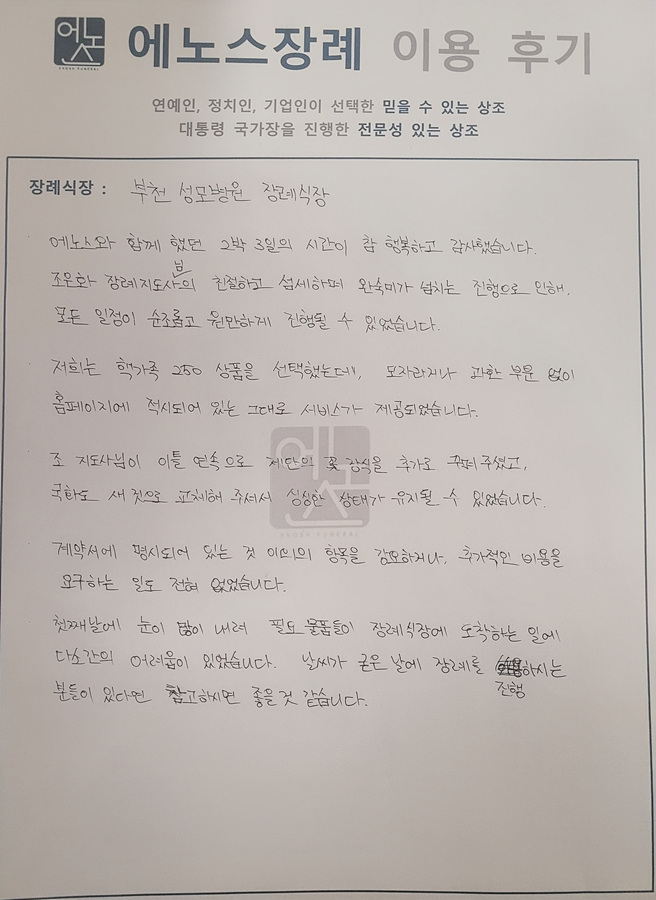 에노스
에노스장례 이용 후기
연예인, 정치인, 기업인이 선택한 믿을 수 있는 상조
대통령 국가장을 진행한 전문성 있는 상조
장례식장 : 부천 성모병원 장례식장
에노스와 함께 했던 2박 3일의 시간이 참 행복하고 감사했습니다.
조은화 장례지도사님의 친절하고 섬세하며 완숙미가 넘치는 진행으로 인해,
모든 일정이 순조롭고 원만하게 진행될 수 있었습니다.
저희는 핵가족 250 상품을 선택했는데, 모자라거나 과한 부분 없이
홈페이지에 적시되어 있는 그대로 서비스가 제공되었습니다.
조 지도사님이 이틀 연속으로 제단의 꽃 장식을 추가로 꾸며 주셨고,
국화도 새 것으로 교체해 주셔서 싱싱한 상태가 유지될 수 있었습니다.
계약서에 명시되어 있는 것 이외의 항목을 강요하거나, 추가적인 비용을
요구하는 일도 전혀 없었습니다.
첫째날에 눈이 많이 내려 필요 물품들이 장례식장에 도착하는 일에
다소간의 어려움이 있었습니다. 날씨가 궂은 날에 장례를 진행하시는
분들이 있다면 참고하시면 좋을 것 같습니다.